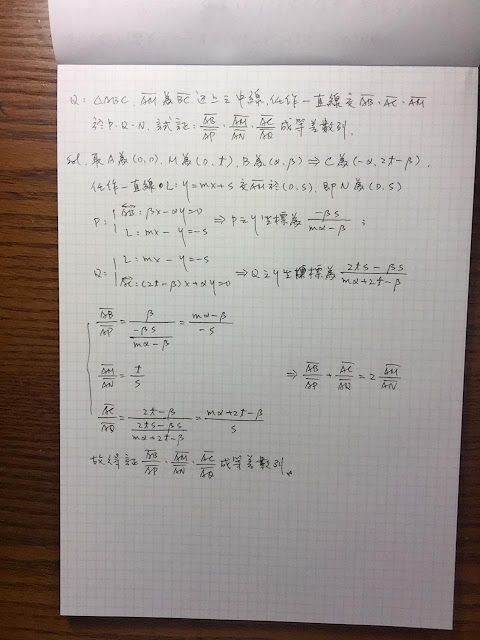 Q: △ABC, AM為BC邊上之中線, 任作一直線交AB、AC、AM
於P、Q、N, 試証: AB/AP、AM/AN、AC/AQ 成等差數列.
sol. 取A為(0,0), M為(0,t), B為(α,β) ⇒ C為(-α, 2t-β).
任作一直線 L: y=mx+s 交AM於(0,s), 即N為(0,s)
P: { AB: βx-αy=0
L: mx-y=-s ⇒ P之y坐標為 -βs/(mα-β) ;
Q: { L: mx-y=-s
AC: (2t-β)x+αy=0 ⇒ Q之y坐標為 (2ts-βs)/(mα+2t-β)
AB/AP = β/(-βs/(mα-β)) = (mα-β)/-s
AM/AN = t/s ⇒ AB/AP + AC/AQ = 2 AM/AN
AC/AQ = (2t-β)/((2ts-βs)/(mα+2t-β)) = (mα+2t-β)/s
故得証 AB/AP、AM/AN、AC/AQ 成等差數列。